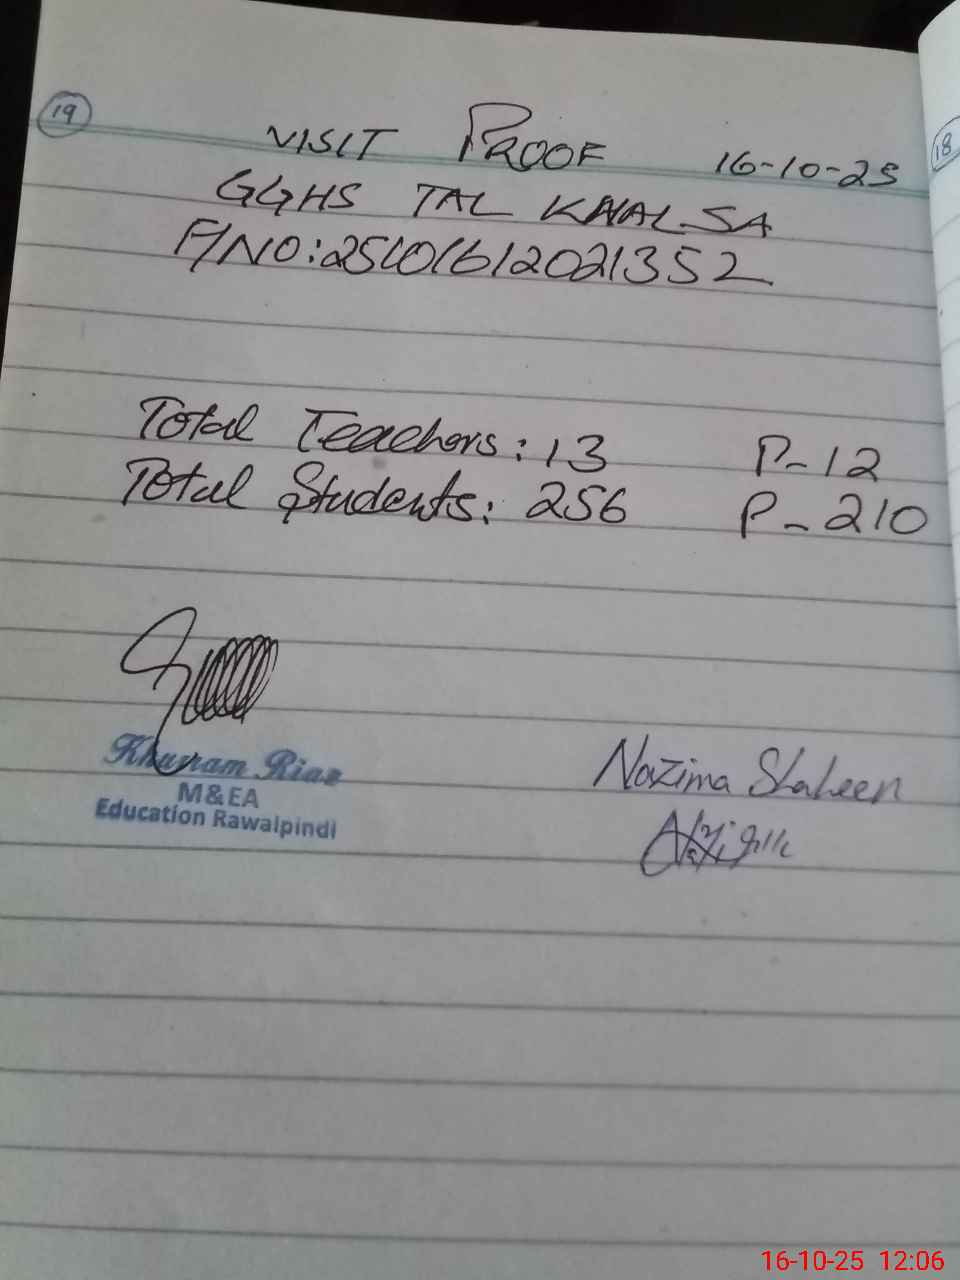 19
18
VISIT PROOF 16-10-25
GGHS TAL KHALSA
F/NO: 25101612021352
Total Teachers: 13 P-12
Total Students: 256 P-210
Khurram Riaz
M&EA
Education Rawalpindi
Nazima Shaheen
16-10-25 12:06